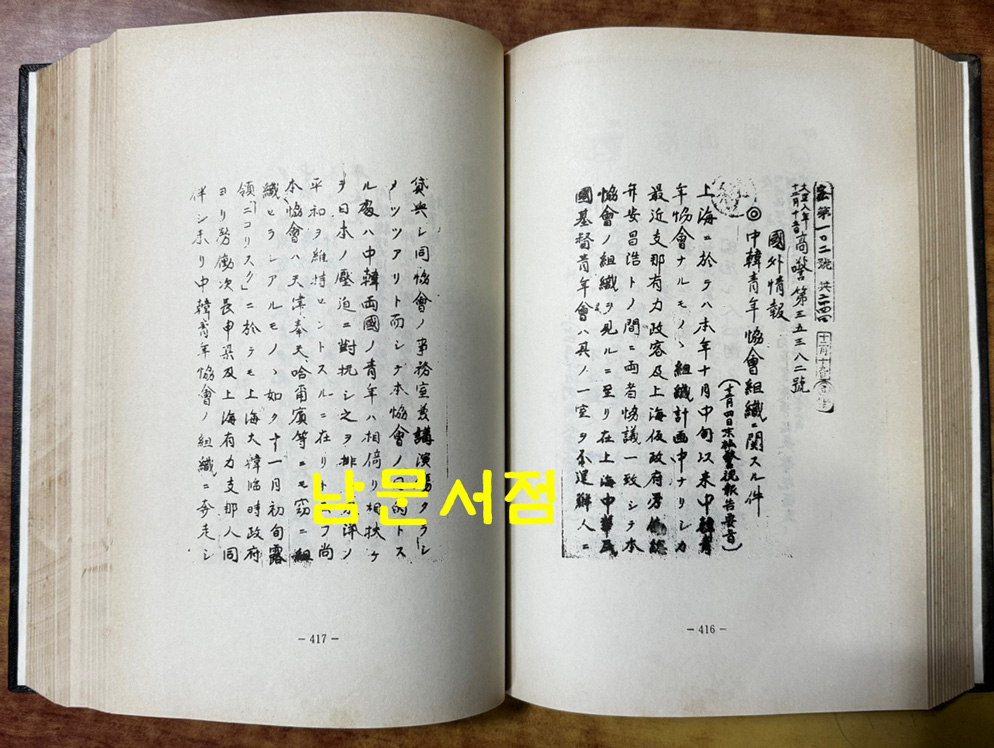 密第一〇二號 共二四四
大正八年
十二月十日
高警第三五三八二號
國外情報
◎中韓青年協會組織ニ関スル件
(十二月四日木村警視報告要旨)
上海ニ於テハ本年十月中旬以来中韓青
年協會ナルモノヽ組織計画中ナリシカ
最近支那有力政客及上海仮政府労働總
弁安昌浩トノ間ニ両者協議一致シテ本
協會ノ組織ヲ見ルニ至リ在上海中華民
國基督青年會ハ其ノ一室ヲ不逞鮮人ニ
- 416 -
貸與シ同協會ノ事務室並講演場タラシ
メツツアリト而シテ本協會ノ目的トス
ル處ハ中韓両國ノ青年ハ相倚リ相扶ケ
テ日本ノ壓迫ニ對抗シ之ヲ排 東洋ノ
平和ヲ維持セントスルニ在リト 尚
本協會ハ天津奉天哈爾賓等ニモ窃ニ組
織セラレアルモノヽ如ク十一月初旬露
領「ニコリスク」ニ於テモ上海大韓臨時政府
ヨリ労働次長申某及上海有力支那人同
伴シ来リ中韓青年協會ノ組織ニ奔走シ
- 417 -
남문서점